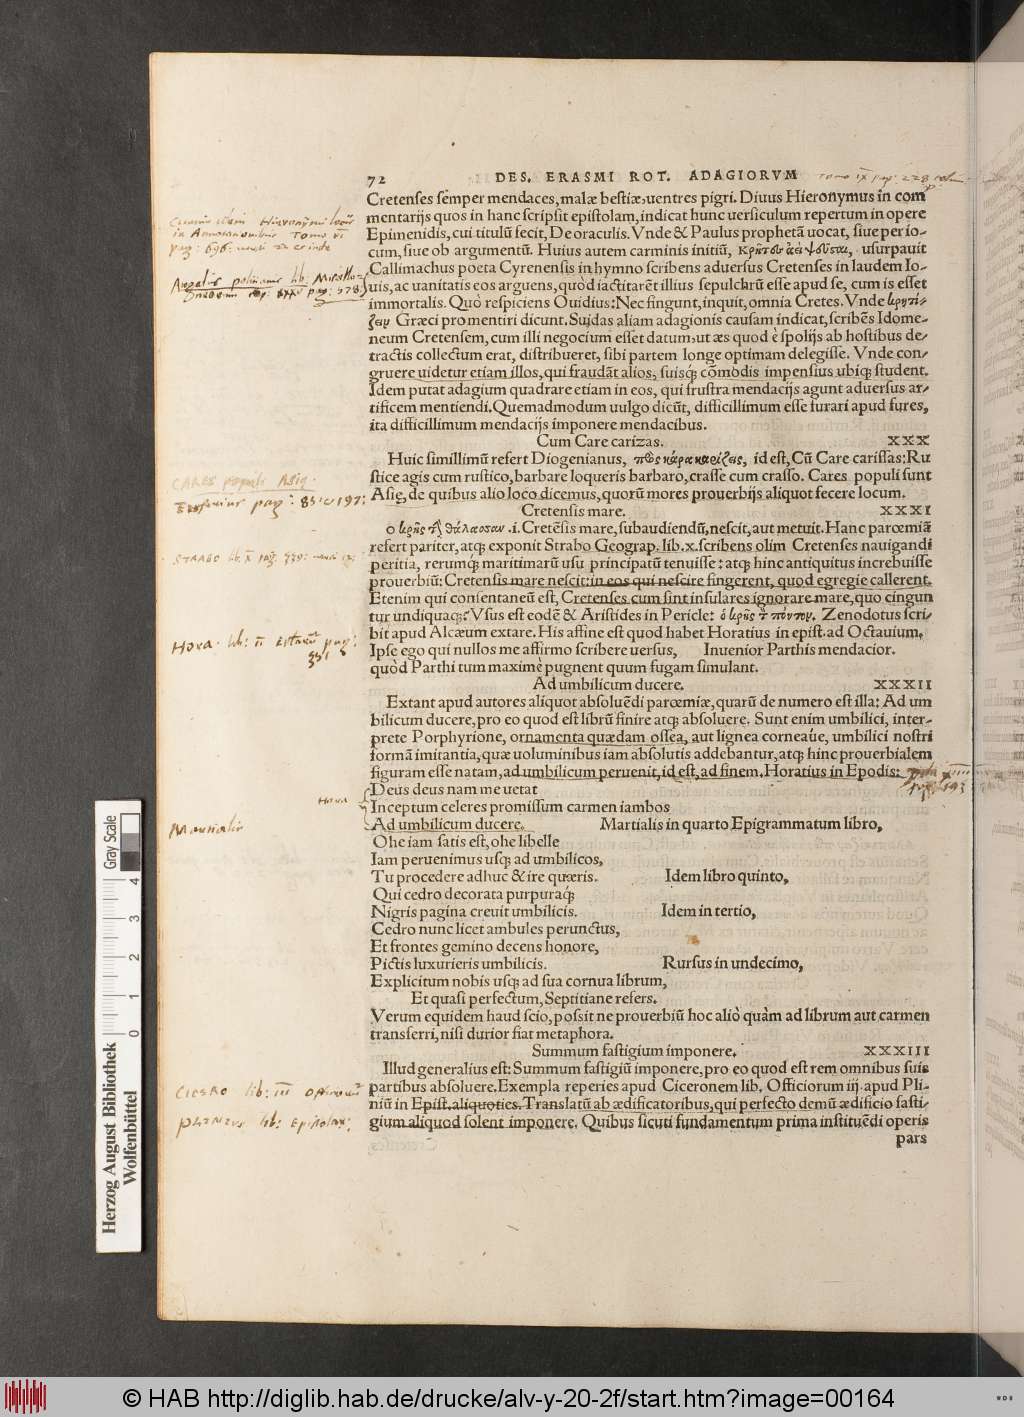 72 DES. ERASMI ROT. ADAGIORVM
Cretenses semper mendaces, malæ bestiæ, uentres pigri. Diuus Hieronymus in com
mentarijs quos in hanc scripsit epistolam, indicat hunc uersiculum repertum in opere
Epimenidis, cui titulũ fecit, De oraculis. Vnde & Paulus prophetã uocat, siue per io-
cum, siue ob argumentũ. Huius autem carminis initiũ, κρῆτες ἀεὶ ψεῦσται, usurpauit
Callimachus poeta Cyrenensis in hymno scribens aduersus Cretenses in laudem Io-
uis, ac uanitatis eos arguens, quòd iactitarẽt illius sepulchrũ esse apud se, cum is esset
immortalis. Quò respiciens Ouidius: Nec fingunt, inquit, omnia Cretes. Vnde κρητί-
ζειν Græci pro mentiri dicunt. Suidas aliam adagionis causam indicat, scribẽs Idome-
neum Cretensem, cum illi negocium esset datum, ut æs quod è spolijs ab hostibus de-
tractis collectum erat, distribueret, sibi partem longe optimam delegisse. Vnde con-
gruere uidetur etiam illos, qui fraudãt alios, suisq́; cõmodis impensius ubiq; student.
Idem putat adagium quadrare etiam in eos, qui frustra mendacijs agunt aduersus ar-
tificem mentiendi. Quemadmodum uulgo dicũt, difficillimum esse furari apud fures,
ita difficillimum mendacijs imponere mendacibus.
Cum Care carizas. XXX
Huic simillimũ refert Diogenianus, πρὸς κάρα καρίζεις, id est, Cũ Care carissas: Ru
stice agis cum rustico, barbare loqueris barbaro, crasse cum crasso. Cares populi sunt
Asię, de quibus alio loco dicemus, quorũ mores prouerbijs aliquot fecere locum.
Cretensis mare. XXXI
ὁ κρὴς τὴν θάλασσαν .i. Cretẽsis mare, subaudiendũ, nescit, aut metuit. Hanc parœmiã
refert pariter, atq; exponit Strabo Geograp. lib. x. scribens olim Cretenses nauigandi
peritia, rerumq́; maritimarũ usu principatũ tenuisse: atq; hinc antiquitus increbuisse
prouerbiũ: Cretensis mare nescit: in eos qui nescire fingerent, quod egregie callerent.
Etenim qui consentaneũ est, Cretenses cum sint insulares ignorare mare, quo cingun
tur undiquaq;? Vsus est eodẽ & Aristides in Pericle: ὁ κρὴς τὸν πόντον. Zenodotus scri-
bit apud Alcæum extare. His affine est quod habet Horatius in epist. ad Octauium.
Ipse ego qui nullos me affirmo scribere uersus, Inuenior Parthis mendacior.
quòd Parthi tum maximè pugnent quum fugam simulant.
Ad umbilicum ducere. XXXII
Extant apud autores aliquot absoluẽdi parœmiæ, quarũ de numero est illa: Ad um
bilicum ducere, pro eo quod est librũ finire atq; absoluere. Sunt enim umbilici, inter-
prete Porphyrione, ornamenta quædam ossea, aut lignea corneaúe, umbilici nostri
formã imitantia, quæ uoluminibus iam absolutis addebantur, atq; hinc prouerbialem
figuram esse natam, ad umbilicum peruenit, id est, ad finem. Horatius in Epodis:
Deus deus nam me uetat
Hora
Inceptum celeres promissum carmen iambos
Ad umbilicum ducere. Martialis in quarto Epigrammatum libro,
Martialis
Ohe iam satis est, ohe libelle
Iam peruenimus usq; ad umbilicos,
Tu procedere adhuc & ire quæris. Idem libro quinto,
Qui cedro decorata purpuraq́;
Nigris pagina creuit umbilicis. Idem in tertio,
Cedro nunc licet ambules perunctus,
Et frontes gemino decens honore,
Pictis luxurieris umbilicis. Rursus in undecimo,
Explicitum nobis usq; ad sua cornua librum,
Et quasi perfectum, Septitiane refers.
Verum equidem haud scio, possit ne prouerbiũ hoc aliò quàm ad librum aut carmen
transferri, nisi durior fiat metaphora.
Summum fastigium imponere. XXXIII
Illud generalius est: Summum fastigiũ imponere, pro eo quod est rem omnibus suis
partibus absoluere. Exempla reperies apud Ciceronem lib. Officiorum iij. apud Pli-
niũ in Epist. aliquoties. Translatũ ab ædificatoribus, qui perfecto demũ ædificio fasti-
gium aliquod solent imponere. Quibus sicuti fundamentum prima instituẽdi operis
pars
CARES populi Asię.
STRABO lib. X pag. 339
CICERO lib: III Officiorum
PLINIUS lib: Epistolar:
Gray Scale
0 1 2 3 4
Herzog August Bibliothek
Wolfenbüttel
© HAB http://diglib.hab.de/drucke/alv-y-20-2f/start.htm?image=00164